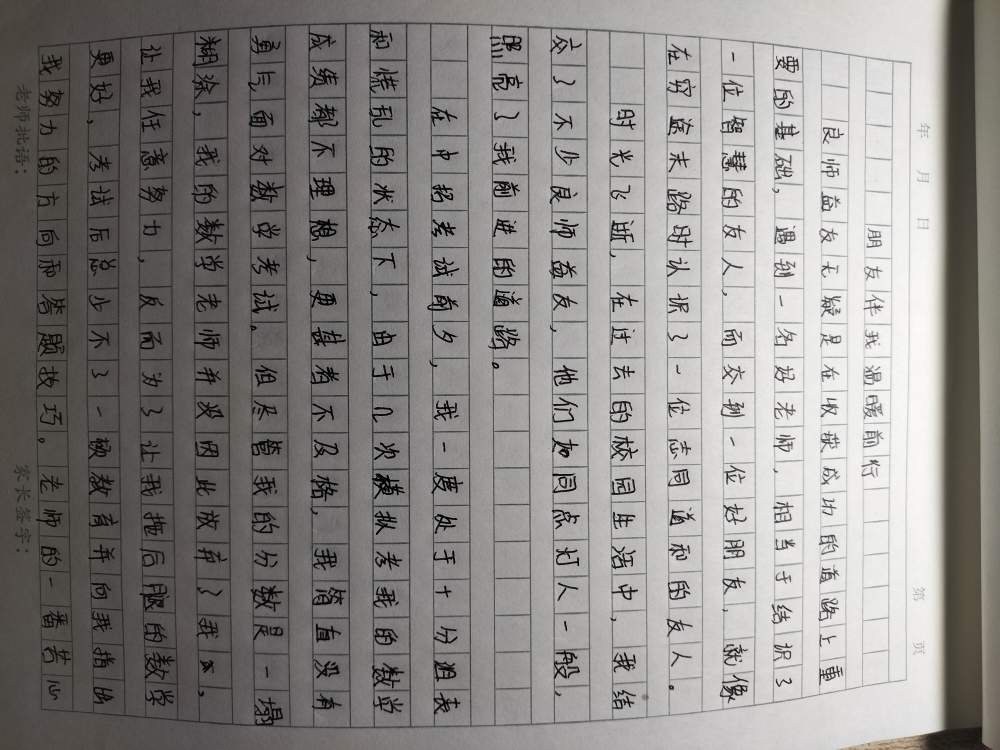 年 月 日 第 页
朋友伴我温暖前行
良师益友无疑是在收获成功的道路上重
要的基础，遇到一名好老师，相当于结识了
一位智慧的友人，而交到一位好朋友，就像
在穷途末路时认识了一位志同道和的友人。
时光飞逝，在过去的校园生活中，我结
交了不少良师益友，他们如同点灯人一般，
照亮了我前进的道路。
在中招考试前夕，我一度处于十分狙表
和慌乱的状态下，由于几次模拟考我的数学
成绩都不理想，更甚者不及格，我简直没有
勇气面对数学考试。但尽管我的分数是一塌
糊涂，我的数学老师并没因此放弃了我
让我任意努力，反而为了让我拖后腿的数学
更好，考试后总少不了一顿教育并向我指出
我努力的方向和答题技巧。老师的一番苦心
老师批语： 家长签字：